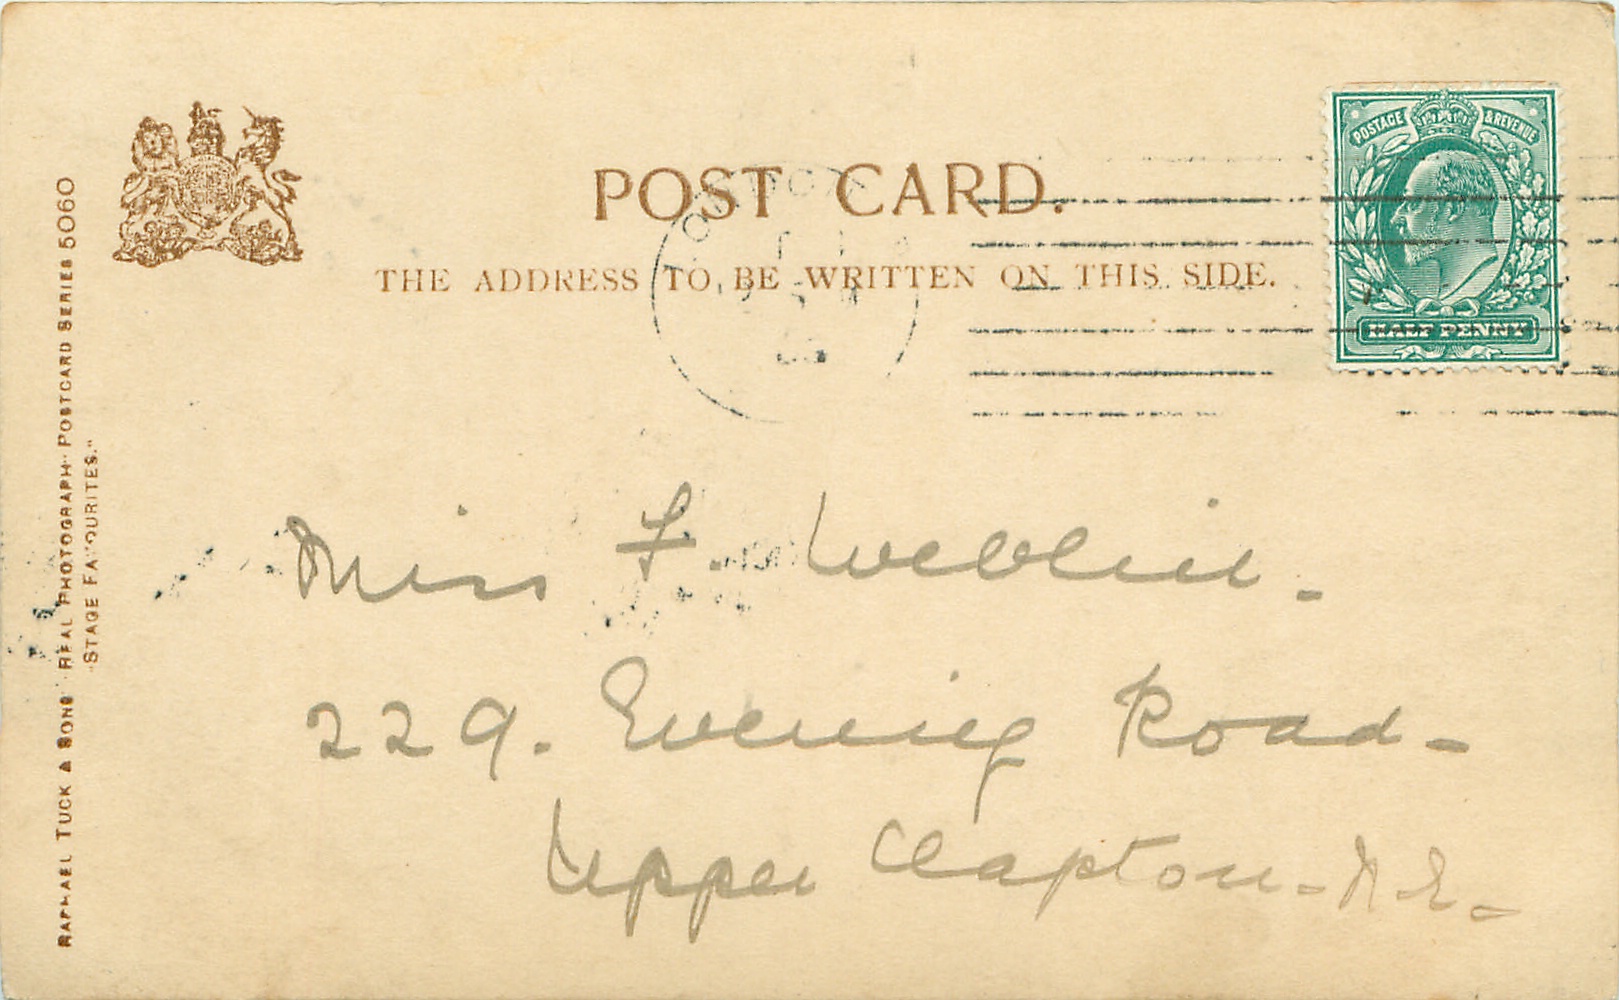 POST CARD.
THE ADDRESS TO BE WRITTEN ON THIS SIDE.
POSTAGE & REVENUE
HALF PENNY
RAPHAEL TUCK & SONS' "REAL PHOTOGRAPH" POSTCARD SERIES 5060
"STAGE FAVOURITES."
Miss F. Weblin.
229. Evening Road-
Upper Clapton-N.E-